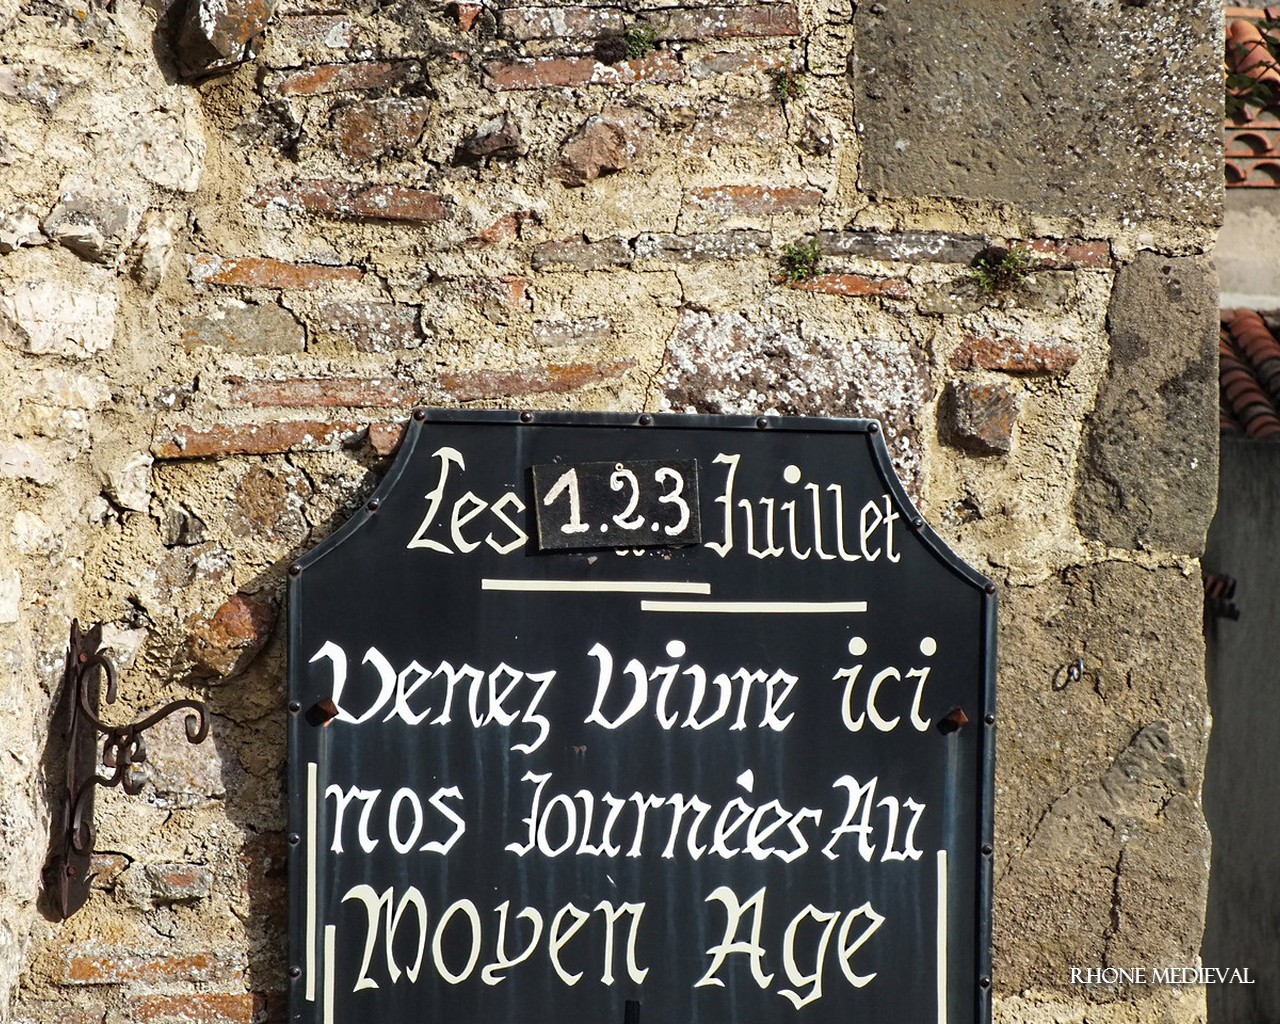 Les 1.2.3 Juillet
Venez Vivre ici
nos Journées Au
Moyen Age
RHONE MEDIEVAL